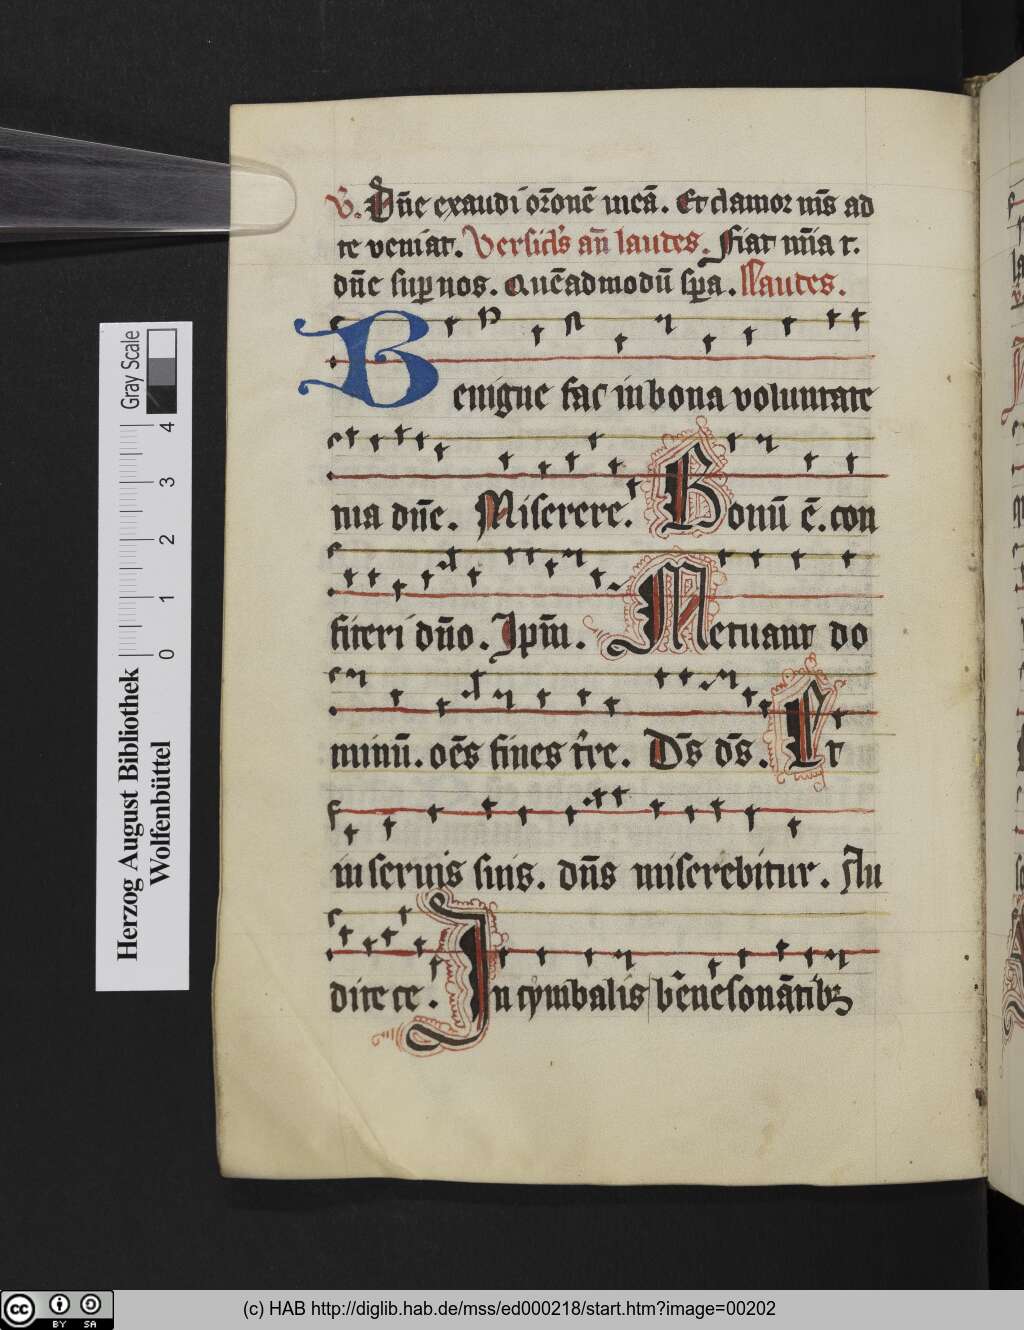 V. Dn̄e exaudi or̄onē meā. Et clamor m̄s ad
te veniat. Versicl's an̄ laudes. Fiat m̄ia t.
dn̄e sup nos. Quēadmodū spa. Laudes.
Benigne fac in bona voluntate
tua dn̄e. Miserere. Bonū ē. con
fiteri dn̄o. Ipm̄. Metuant do
minū. oēs fines t're. Ds̄ ds̄. Et
in seruis suis. dn̄s miserebitur. Au
dite ce. In cymbalis b'enesonātib3
Herzog August Bibliothek
Wolfenbüttel
0 1 2 3 4
Gray Scale
cc BY SA
(c) HAB http://diglib.hab.de/mss/ed000218/start.htm?image=00202